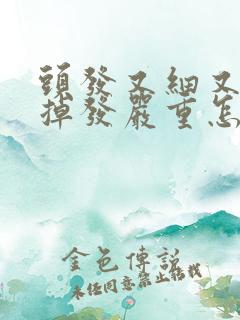 頭發又細又
掉發嚴重怎
金色傳説
未經同意禁止転載